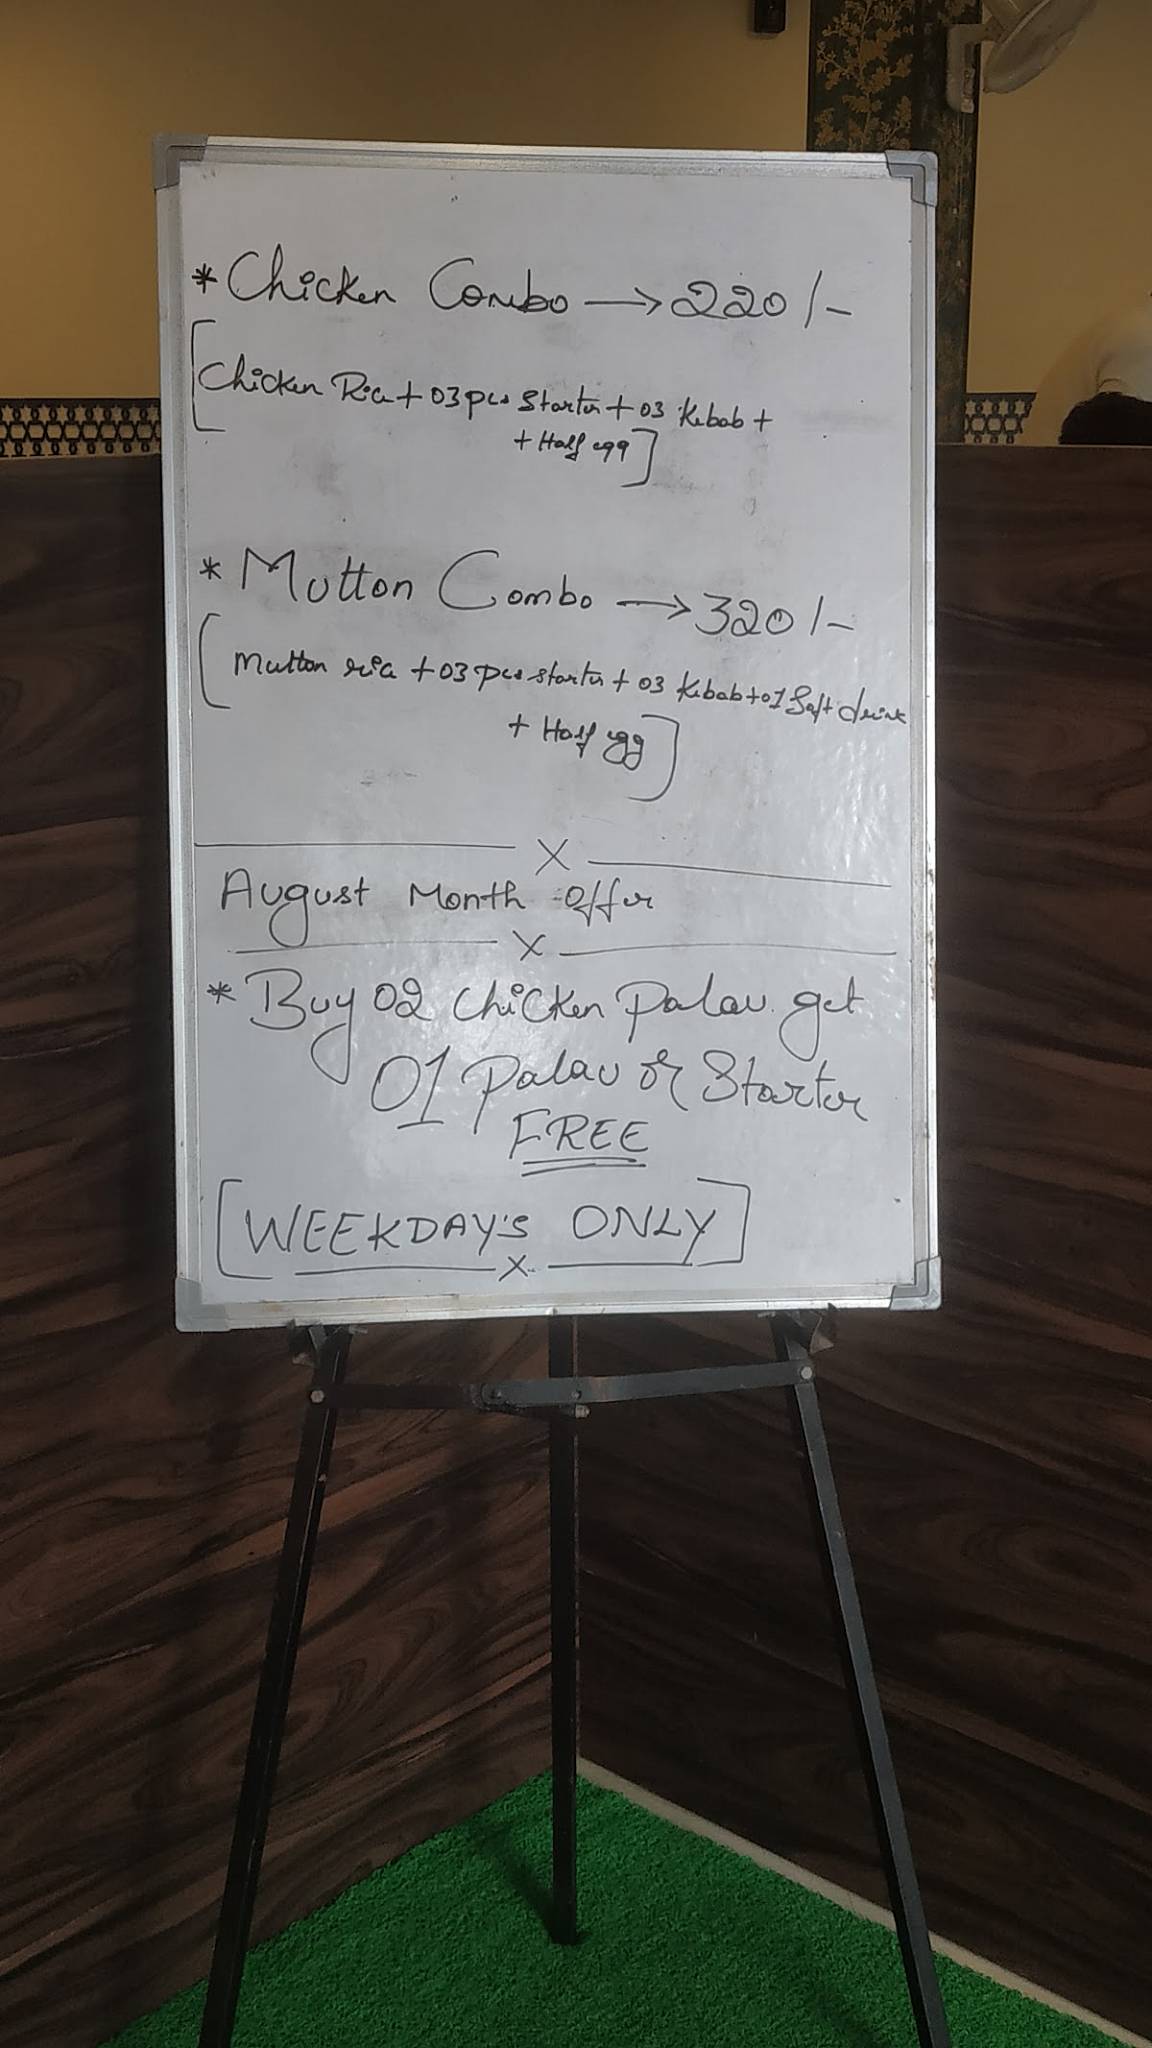 * Chicken Combo → 220/-
[Chicken Rice + 03 pcs Starter + 03 Kebab +
+ Half egg]
* Mutton Combo → 320/-
[Mutton rice + 03 pcs starter + 03 Kebab + 01 Soft drink
+ Half egg]
X
August Month Offer
X
* Buy 02 Chicken Palav get
01 Palav or Starter
FREE
[WEEKDAY'S ONLY]
X